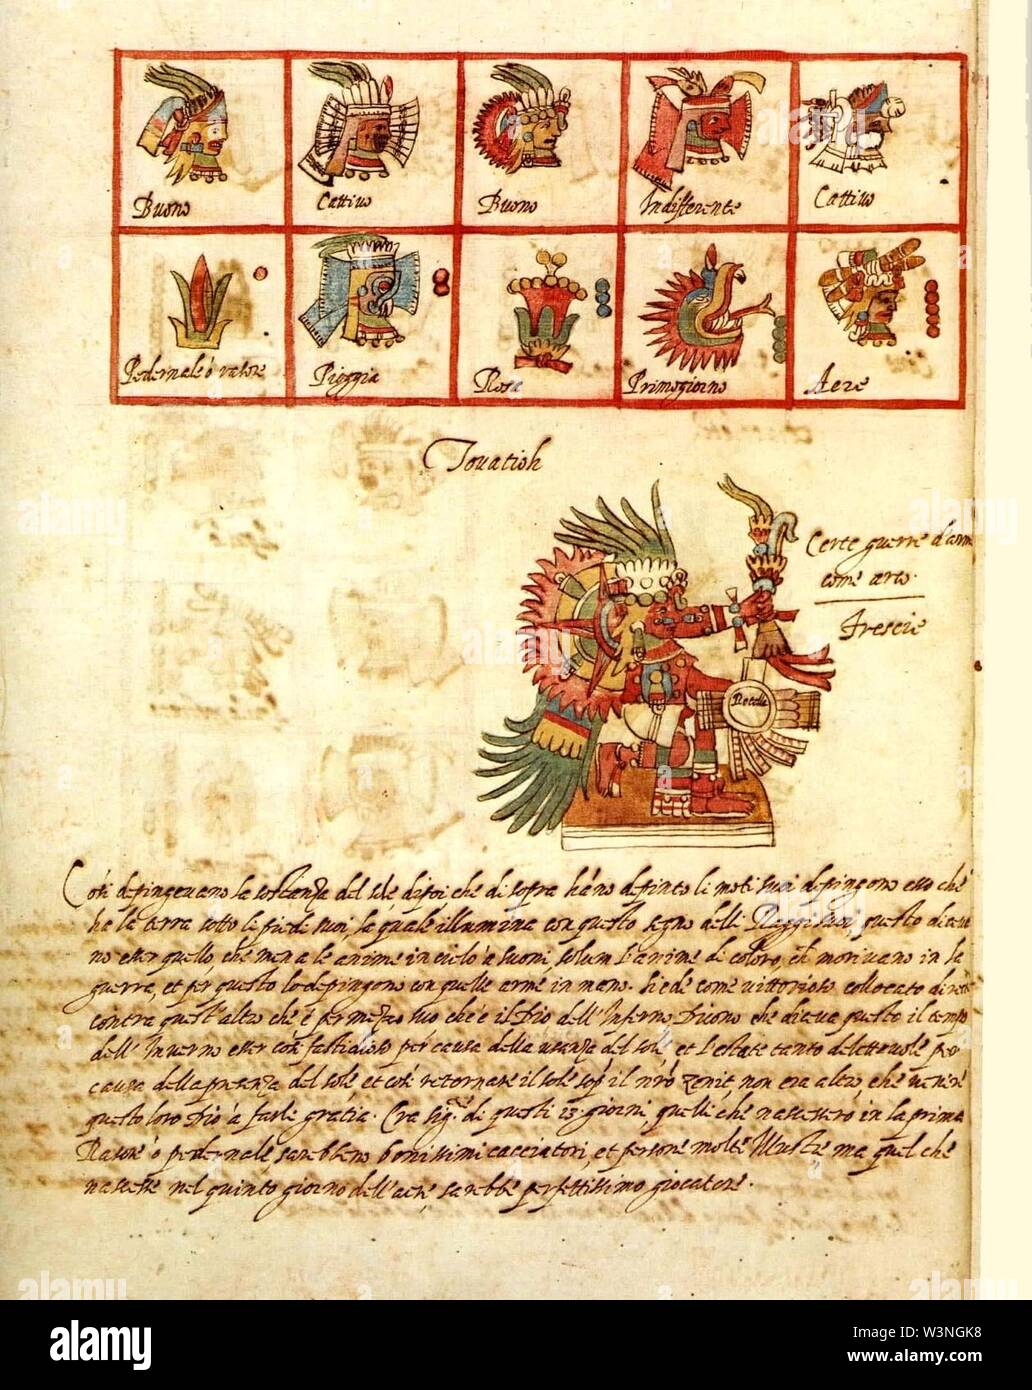 Buono Cattivo Buono Indifferente Cattivo
Pedernale ò rasore Pioggia Rosa Primogiorno Aere
Tonatioh
Certe guerre d'arm
come arco.
Frescie
Rotella
Così depingevano la sostanza del sole dipoi che di sopra hano depinto li moti suoi depingono esso che
ha la terra sotto le piedi suoi, la quale illumina con questo segno delli Raggi suoi, questo dicevā
no esser quello, che mena le anime in cielo à suoni, solum l'anime di coloro, che morivano in la
guerra, et per questo lo depingono con quelle arme in mano. Siede come vittorioso collocato di
contra quest'altro che è per mezzo suo che è il Dio dell'Inferno. Dicono che diceva questo il tempo
dell'Inverno esser così fastidioso per causa della del sole, et l'estate tanto delettevole per
causa della presenza del sole, et così retornare il sole sop̄ il nrō zenit, non era altro, che venire
questo loro Dio à farle gratia. Era di questi 13 giorni, quelli che nascessero in la prima
Rasore ò pedernale sarebbero bonissimi cacciatori, et persone molte Illustre ma quel che
nascesse nel quinto giorno dell'aere, sarebbe perfettissimo giocatore.
alamy
Image ID: W3NGK8
www.alamy.com